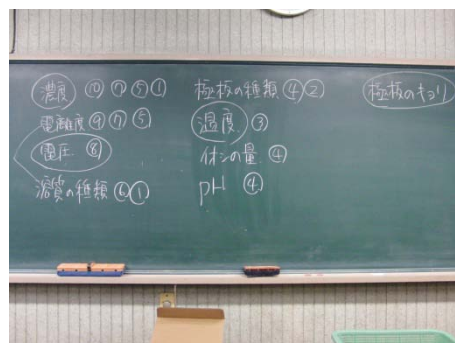 濃度 ⑩ ⑦ ⑤ ①
電離度 ⑨ ⑦ ⑤
電圧 ⑧
溶質の種類 ⑥ ①
極板の種類 ④ ②
温度 ③
イオンの量 ④
pH ④
極板のキョリ